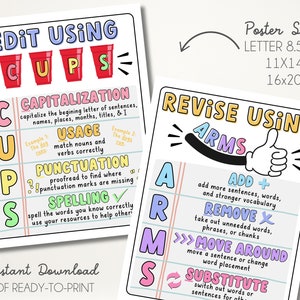 EDIT USING
CUPS
C
CAPITALIZATION
capitalize the begining letter of sentences,
names, places, months, titles, & I
U
USAGE
match nouns and
verbs correctly
P
PUNCTUATION
proofread to find where
punctuation marks are missing
S
SPELLING
spell the words you know correctly
use your resources to help others
Poster S
LETTER 8.5
11X14
16x20
REVISE USIN
ARMS
A
ADD +
add more sentences, words,
and stronger vocabulary
R
REMOVE X
take out unneeded words,
phrases, or chunks
M
>>> MOVE AROUND
move a sentence or change
word placement
S
SUBSTITUTE
switch out words or
nstant Download
DF READY-TO-PRINT